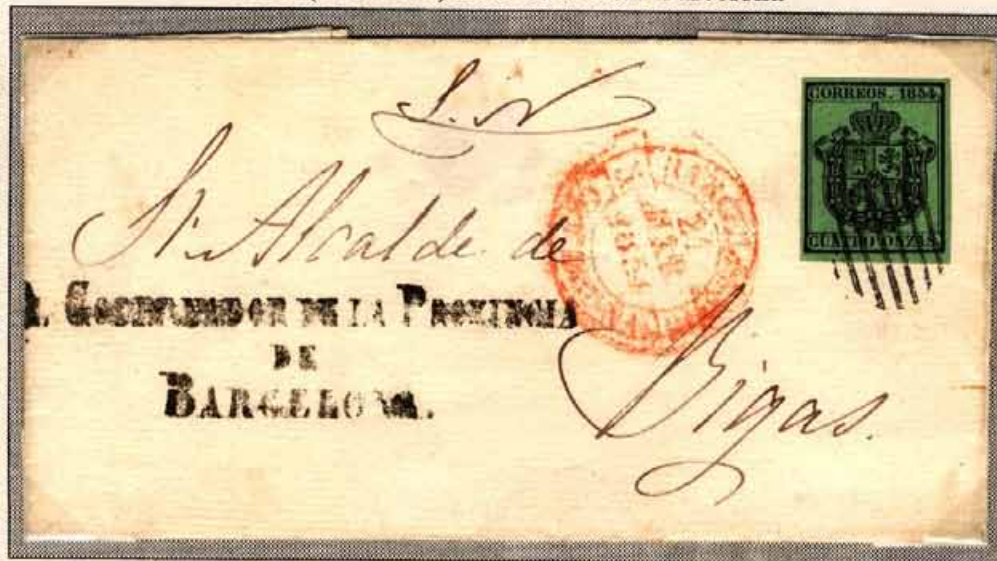 S. N
CORREOS. 1854.
CUATRO ONZAS
Sr. Alcalde de
GOBERNADOR DE LA PROVINCIA
DE
BARCELONA.
BARCELONA
24
1854
Bigas.